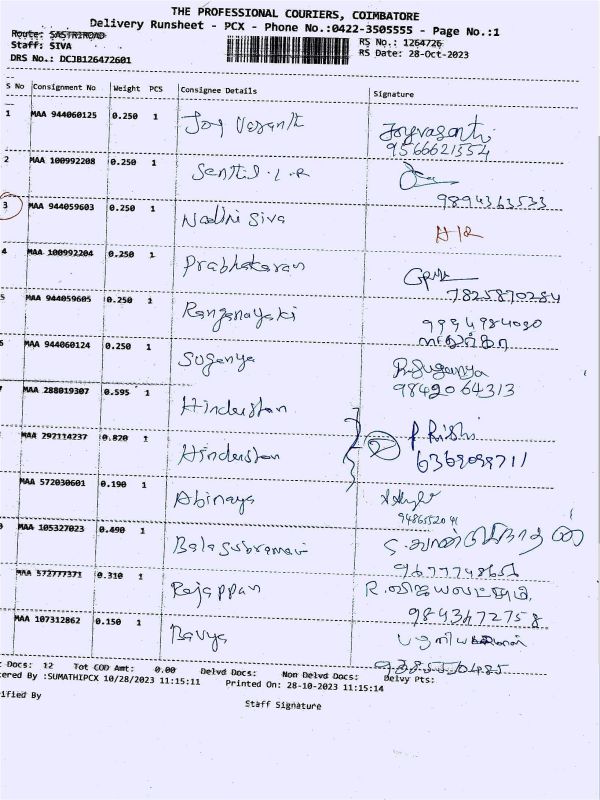 THE PROFESSIONAL COURIERS, COIMBATORE
Delivery Runsheet - PCX - Phone No.:0422-3505555 - Page No.:1
Route: SASTRIROAD RS No.: 1264726
Staff: SIVA RS Date: 28-Oct-2023
DRS No.: DCJB126472601
S No Consignment No Weight PCS Consignee Details Signature
1 MAA 944060125 0.250 1 Joy Vesanth Joyvasanth
9566621554
2 MAA 100992208 0.250 1 Senthil.L.R
9894363533
3 MAA 944059603 0.250 1 Nadhi Siva
4 MAA 100992204 0.250 1 Prabhakaran
7825870284
5 MAA 944059605 0.250 1 Ranganayaki 9994984030
6 MAA 944060124 0.250 1 Suganya P.Suganya
9842064313
MAA 288019307 0.595 1 Hindustan P Rishi
MAA 292114237 0.820 1 Hindustan 2 6369099711
MAA 572030601 0.190 1 Abinaya
9486552041
MAA 105327023 0.490 1 Balasubramani
9677748656
MAA 572777371 0.310 1 Rajappan R.
9843672758
MAA 107312862 0.150 1 Bavya
9385550485
Docs: 12 Tot COD Amt: 0.00 Delvd Docs: Non Delvd Docs: Delvy Pts:
ered By :SUMATHIPCX 10/28/2023 11:15:11 Printed On: 28-10-2023 11:15:14
ified By Staff Signature